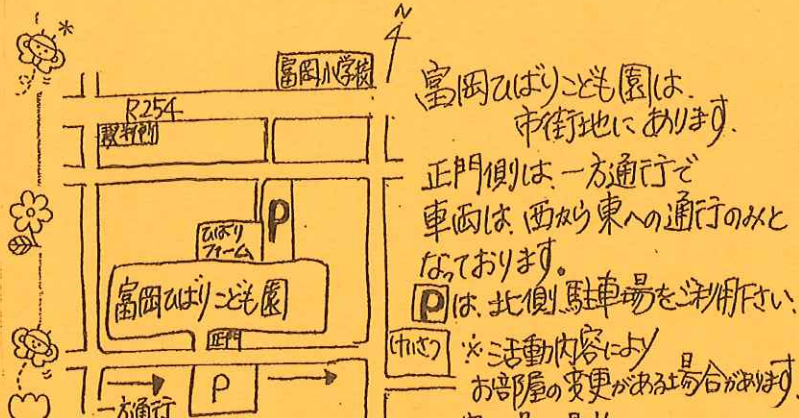 N
富岡小学校
R254
裁判所
P
ひばり
ファーム
富岡ひばりこども園
正門
けいさつ
一方通行
P
富岡ひばりこども園は、
市街地にあります。
正門側は、一方通行で
車両は、西から東への通行のみと
なっております。
Pは、北側駐車場をご利用下さい。
※活動内容により
お部屋の変更がある場合があります。